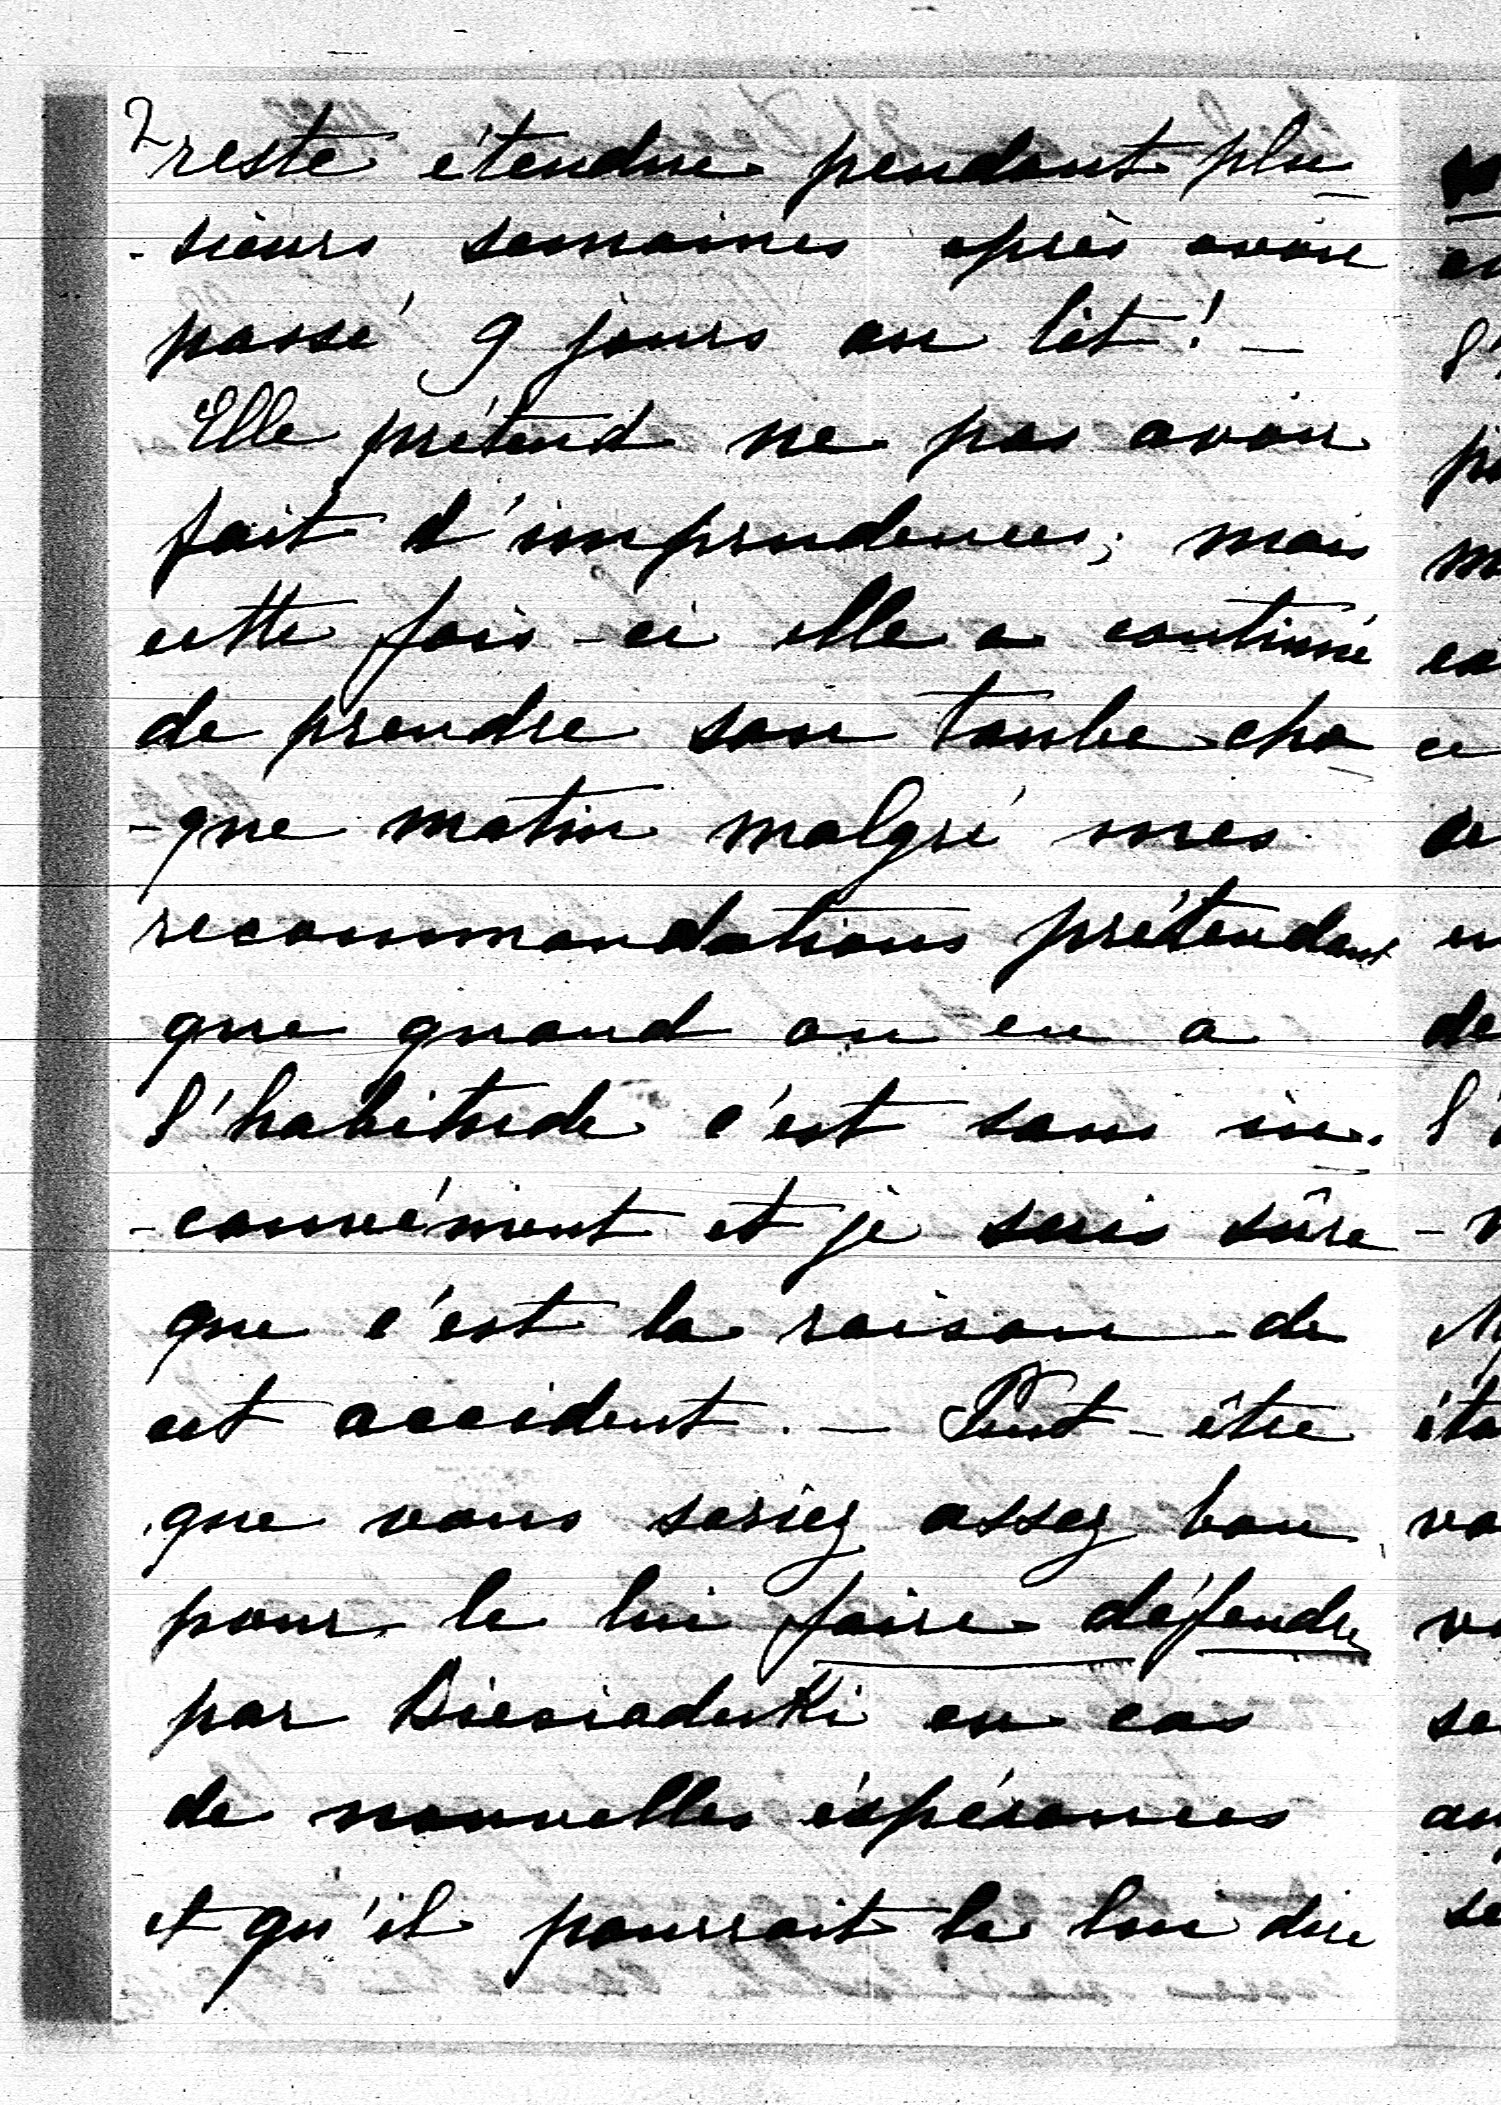 2
reste étendue pendant plu
-sieurs semaines après avoir
passé 9 jours au lit! -
Elle prétend ne pas avoir
fait d'imprudences; mais
cette fois-ci elle a continué
de prendre son toube cha
-que matin malgré mes
recommandations prétendant
que quand on en a
l'habitude c'est sans in-
-convénient et je suis sûre
que c'est la raison de
cet accident. - Peut-être
que vous seriez assez bon
pour le lui faire défendre
par en cas
de nouvelles éspérances
et qu'il pourrait le lui dire